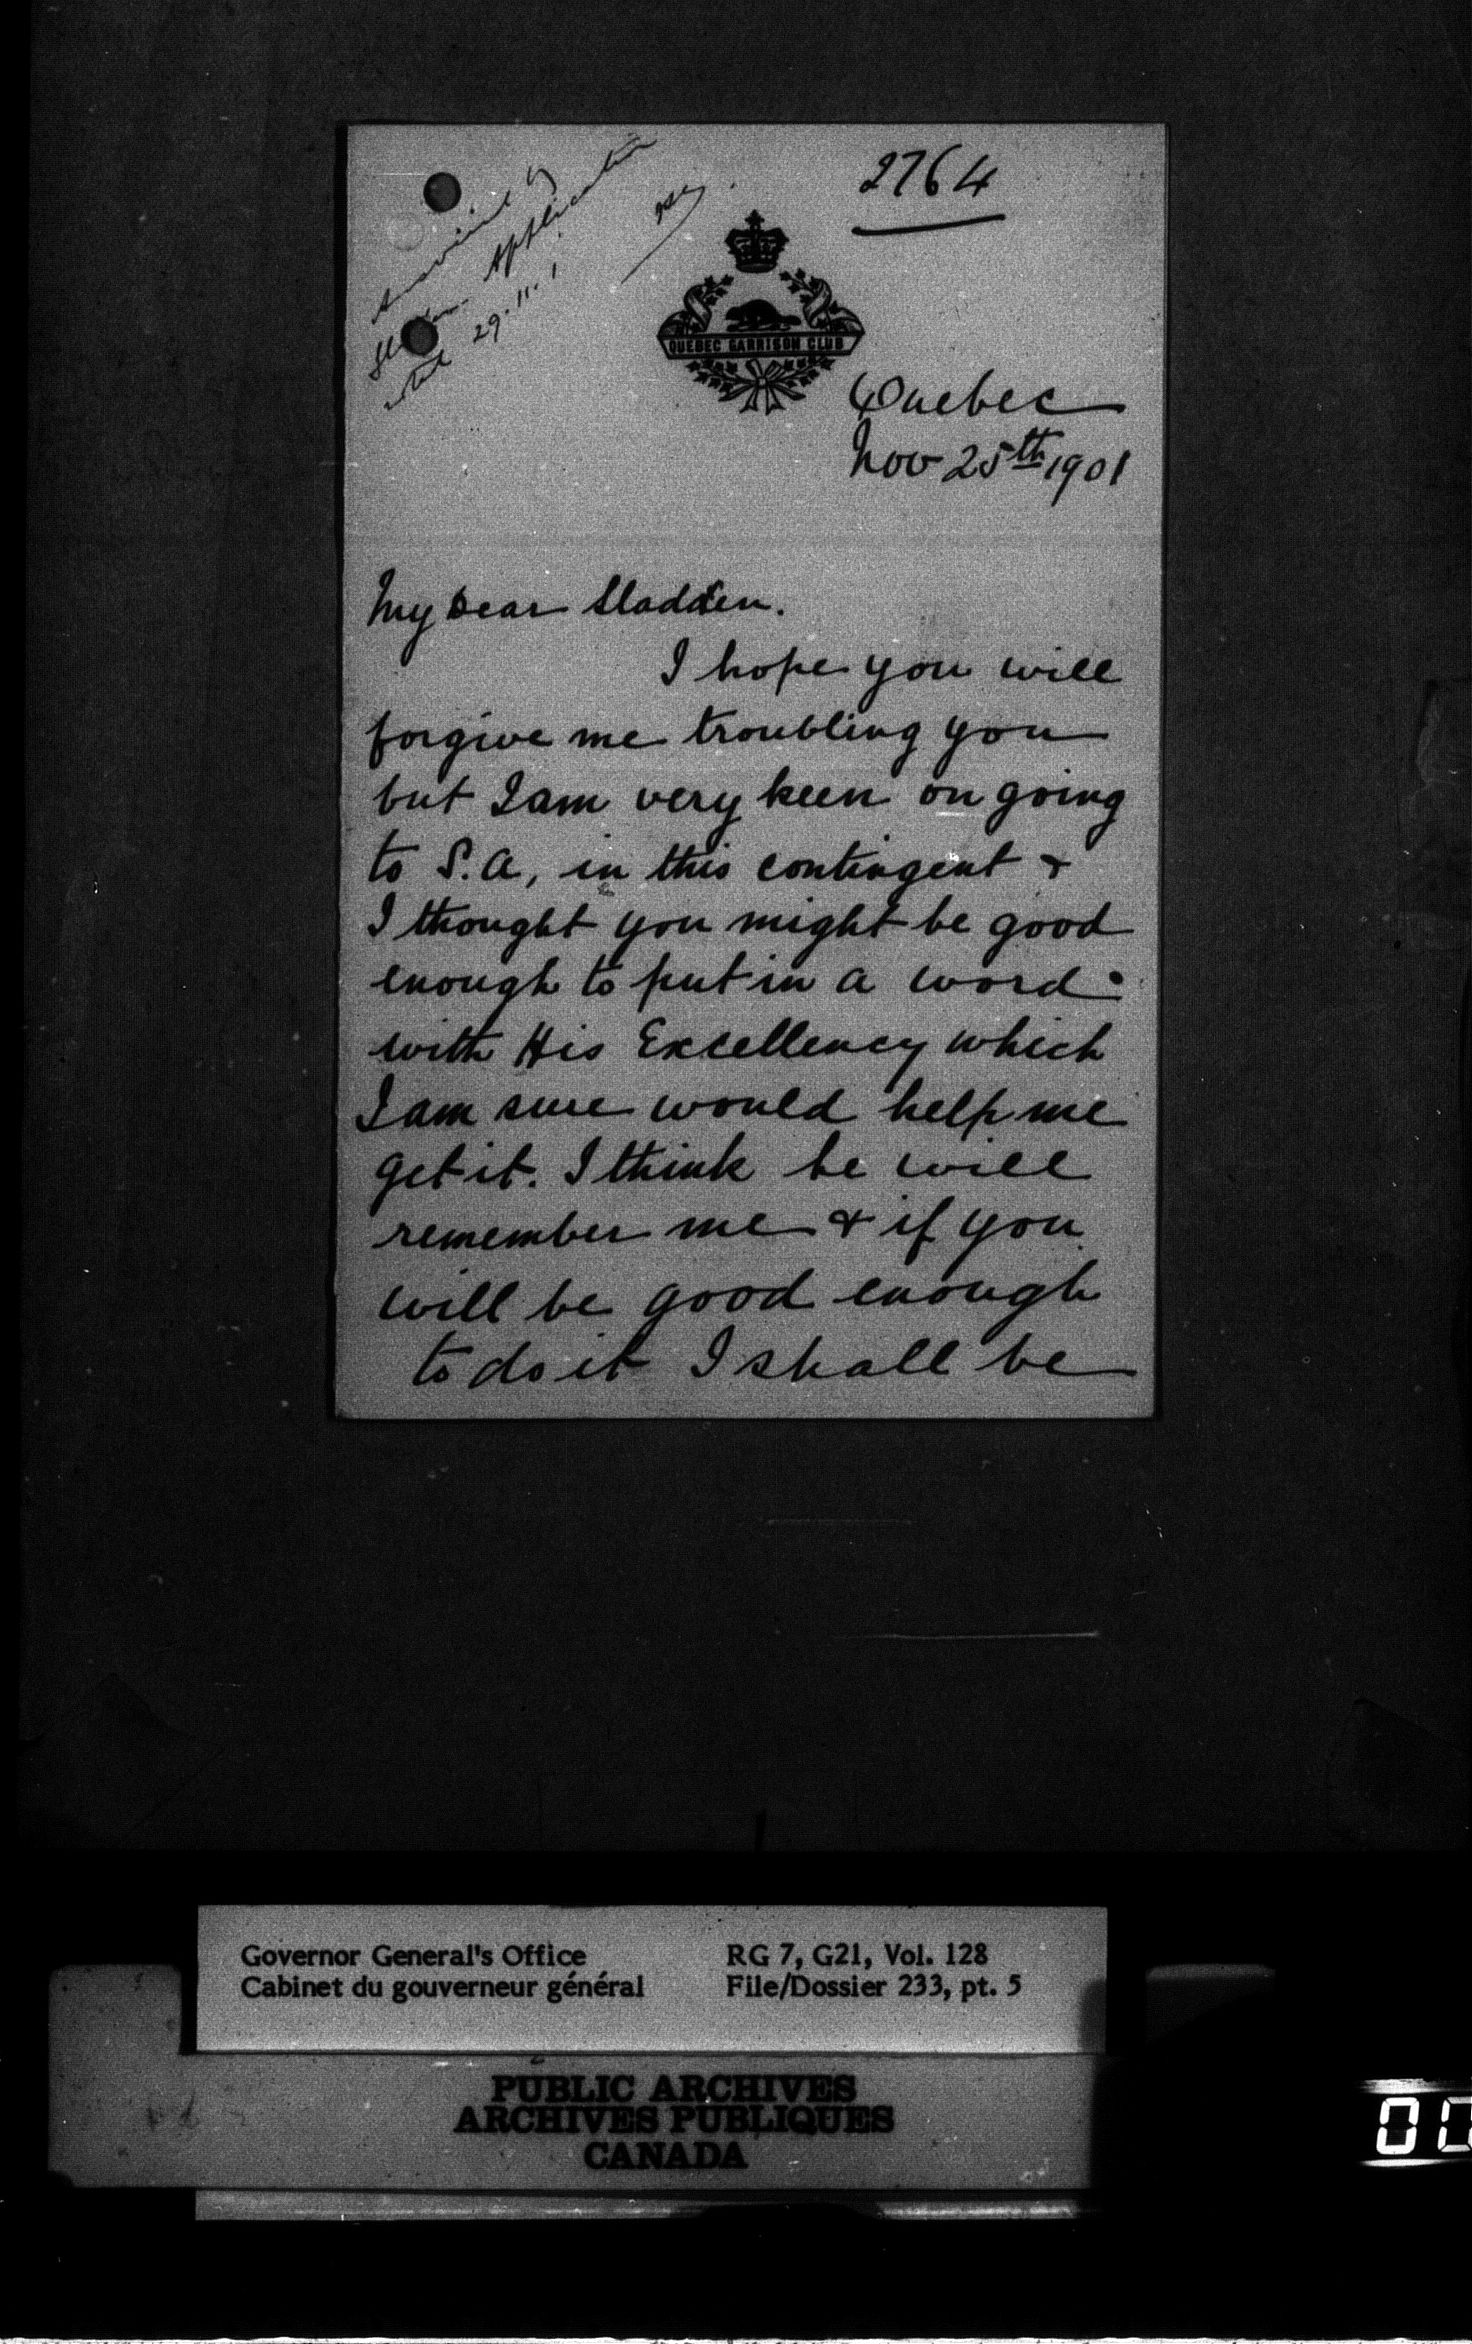 2764
Application
29.11.1
QUEBEC GARRISON CLUB
Quebec
Nov 25th 1901
My Dear Sladden.
I hope you will
forgive me troubling you
but I am very keen on going
to S.A, in this contingent &
I thought you might be good
enough to put in a word
with His Excellency which
I am sure would help me
get it. I think he will
remember me & if you
will be good enough
to do it I shall be
Governor General's Office
Cabinet du gouverneur général
RG 7, G21, Vol. 128
File/Dossier 233, pt. 5
PUBLIC ARCHIVES
ARCHIVES PUBLIQUES
CANADA